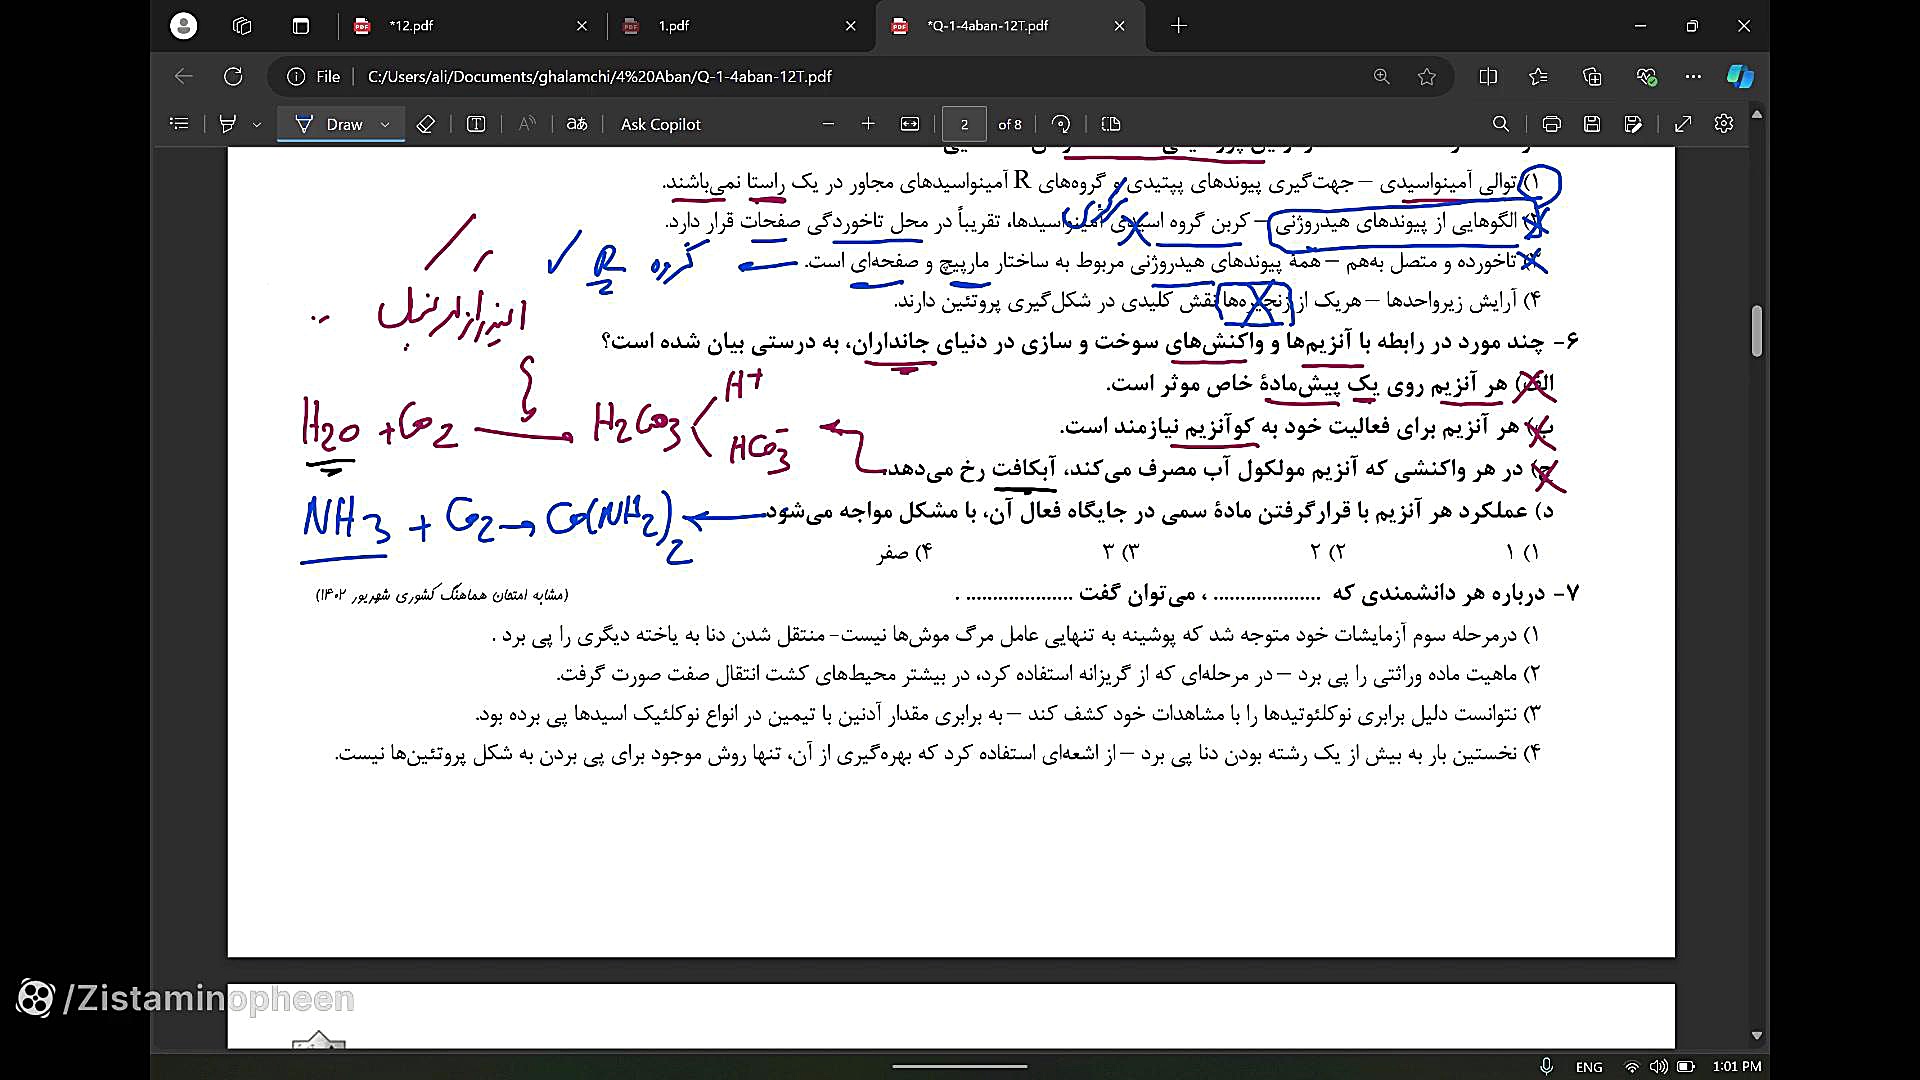 *12.pdf
1.pdf
*Q-1-4aban-12T.pdf
File C:/Users/ali/Documents/ghalamchi/4%20Aban/Q-1-4aban-12T.pdf
Draw
aあ
Ask Copilot
2 of 8
۱) توالی آمینواسیدی – جهت‌گیری پیوندهای پپتیدی و گروه‌های R آمینواسیدهای مجاور در یک راستا نمی‌باشند.
۲) الگوهایی از پیوندهای هیدروژنی – کربن گروه اسیدی آمینواسیدها، تقریباً در محل تاخوردگی صفحات قرار دارد.
مرکزی
۳) تاخورده و متصل به‌هم – همهٔ پیوندهای هیدروژنی مربوط به ساختار مارپیچ و صفحه‌ای است.
گروه R
۴) آرایش زیرواحدها – هریک از زنجیره‌ها نقش کلیدی در شکل‌گیری پروتئین دارند.
۶- چند مورد در رابطه با آنزیم‌ها و واکنش‌های سوخت و سازی در دنیای جانداران، به درستی بیان شده است؟
الف) هر آنزیم روی یک پیش‌مادهٔ خاص موثر است.
ب) هر آنزیم برای فعالیت خود به کوآنزیم نیازمند است.
H2O + CO2 → H2CO3 H+ HCO3-
ج) در هر واکنشی که آنزیم مولکول آب مصرف می‌کند، آبکافت رخ می‌دهد.
د) عملکرد هر آنزیم با قرارگرفتن مادهٔ سمی در جایگاه فعال آن، با مشکل مواجه می‌شود
NH3 + CO2 → CO(NH2)2
۱) ۱ ۲) ۲ ۳) ۳ ۴) صفر
۷- درباره هر دانشمندی که .................... ، می‌توان گفت .................... . (مشابه امتحان هماهنگ کشوری شهریور ۱۴۰۲)
۱) درمرحله سوم آزمایشات خود متوجه شد که پوشینه به تنهایی عامل مرگ موش‌ها نیست- منتقل شدن دنا به یاخته دیگری را پی برد .
۲) ماهیت ماده وراثتی را پی برد – در مرحله‌ای که از گریزانه استفاده کرد، در بیشتر محیط‌های کشت انتقال صفت صورت گرفت.
۳) نتوانست دلیل برابری نوکلئوتیدها را با مشاهدات خود کشف کند – به برابری مقدار آدنین با تیمین در انواع نوکلئیک اسیدها پی برده بود.
۴) نخستین بار به بیش از یک رشته بودن دنا پی برد – از اشعه‌ای استفاده کرد که بهره‌گیری از آن، تنها روش موجود برای پی بردن به شکل پروتئین‌ها نیست.
/Zistaminopheen
ENG 1:01 PM